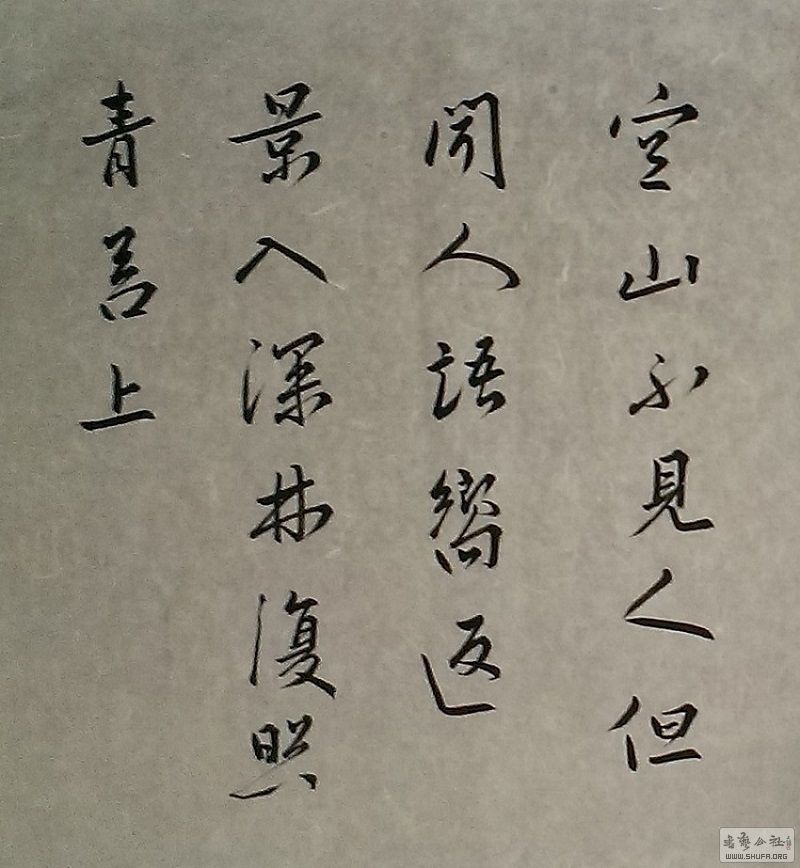 空山不見人但
聞人語嚮返
景入深林復照
青苔上
書藝公社
WWW.SHUFA.ORG